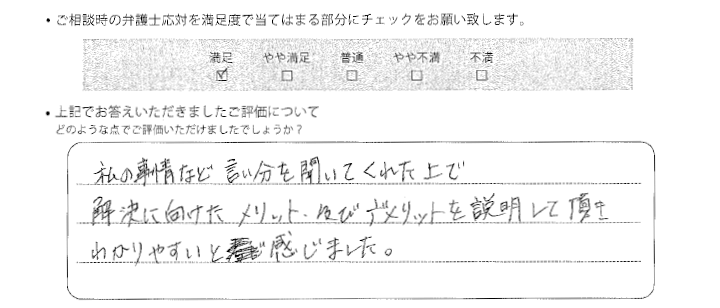 ・ご相談時の弁護士応対を満足度で当てはまる部分にチェックをお願い致します。
満足 やや満足 普通 やや不満 不満
☑ ☐ ☐ ☐ ☐
・上記でお答えいただきましたご評価について
どのような点でご評価いただけましたでしょうか？
私の事情など言い分を聞いてくれた上で
解決に向けたメリット・及びデメリットを説明して頂き
わかりやすいと感じました。